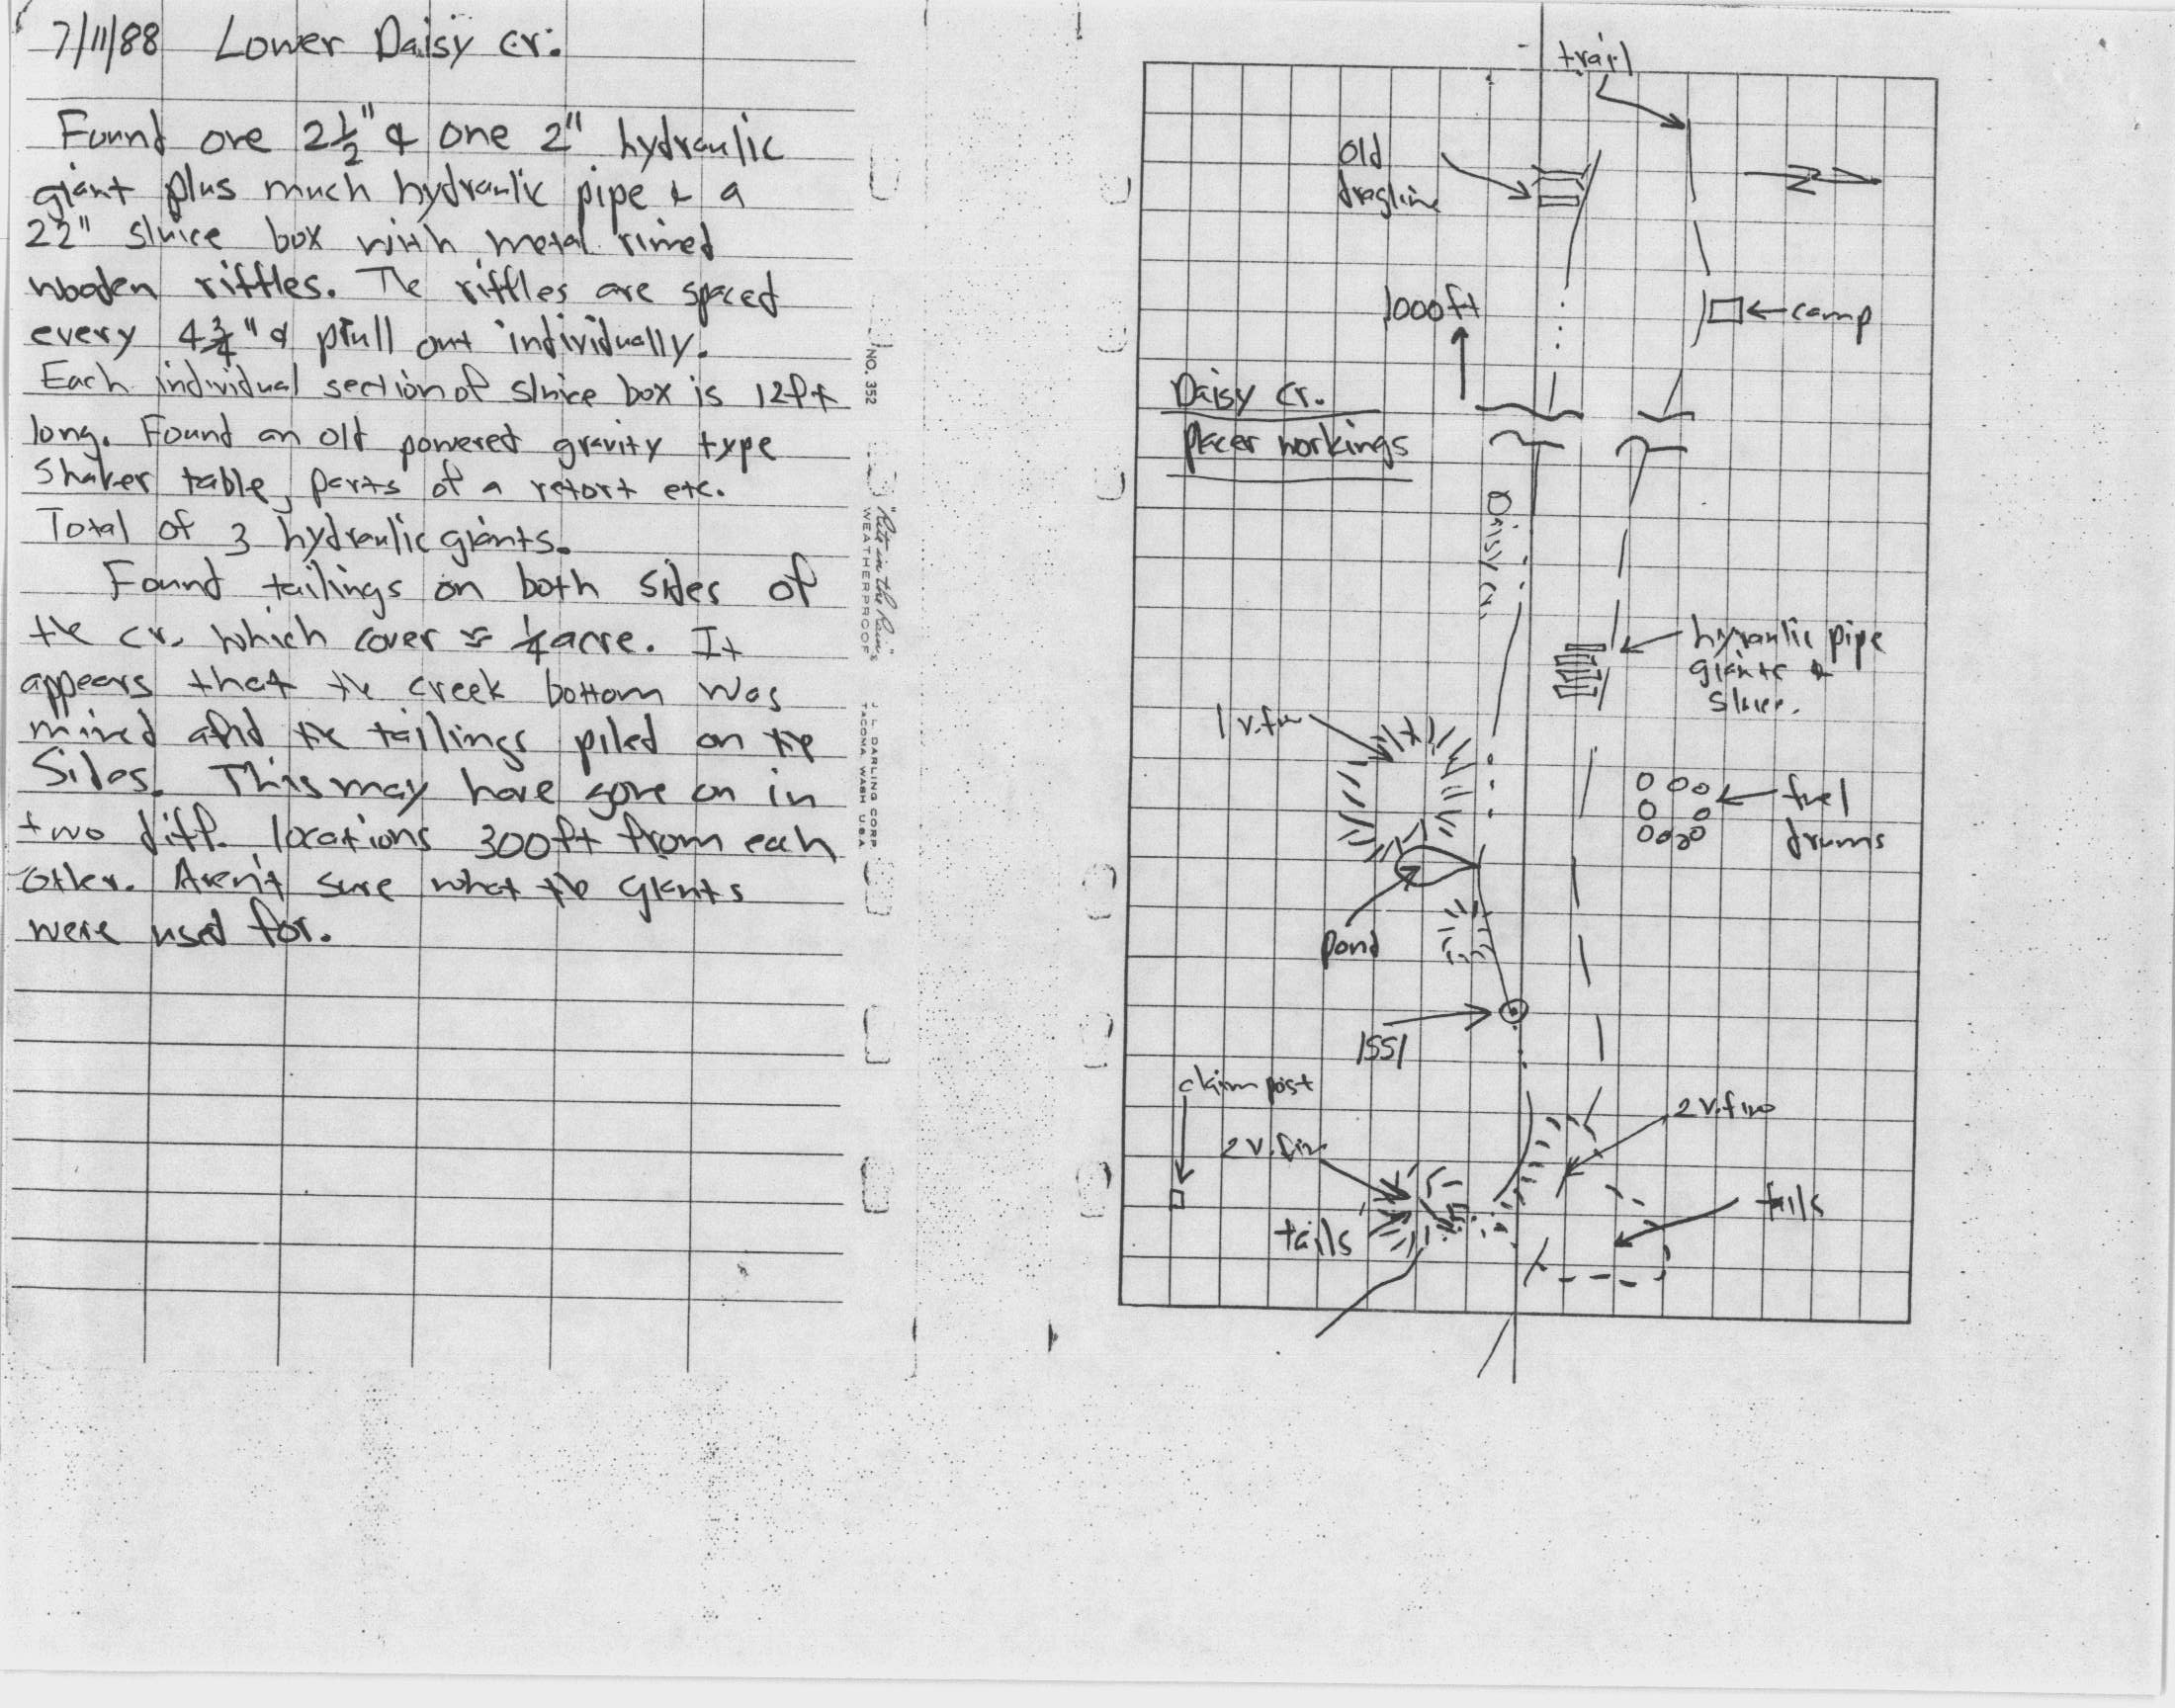 7/11/88 Lower Daisy cr.
Found one 2½" & one 2" hydraulic
giant plus much hydraulic pipe & a
22" sluice box with metal rimed
wooden riffles. The riffles are spaced
every 4¾" & pull out individually.
Each individual section of sluice box is 12ft
long. Found an old powered gravity type
shaker table, parts of a retort etc.
Total of 3 hydraulic giants.
Found tailings on both sides of
the cr. which cover ≈ ¼ acre. It
appears that the creek bottom was
mined and the tailings piled on the
Sides. This may have gone on in
two diff. locations 300ft from each
other. Aren't sure what the giants
were used for.
NO. 352
"Rite in the Rain"
WEATHERPROOF
J. L. DARLING CORP.
TACOMA WASH USA
trail
old
dragline
1000ft
camp
Daisy cr.
placer workings
Daisy cr.
hyraulic pipe
giants &
sluice.
1 v.fine
fuel
drums
pond
1551
claim post
2 v.fine
2 v.fine
tails
tails